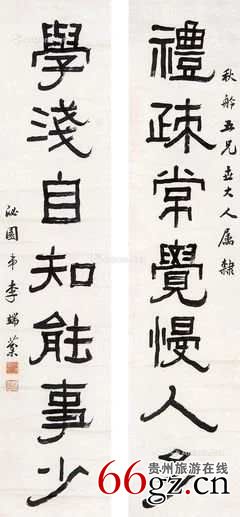 秋舲五兄立大人属隸
禮疎常覺慢人多
學淺自知能事少
苾園弟李端棻
贵州旅游在线
66gz.cn